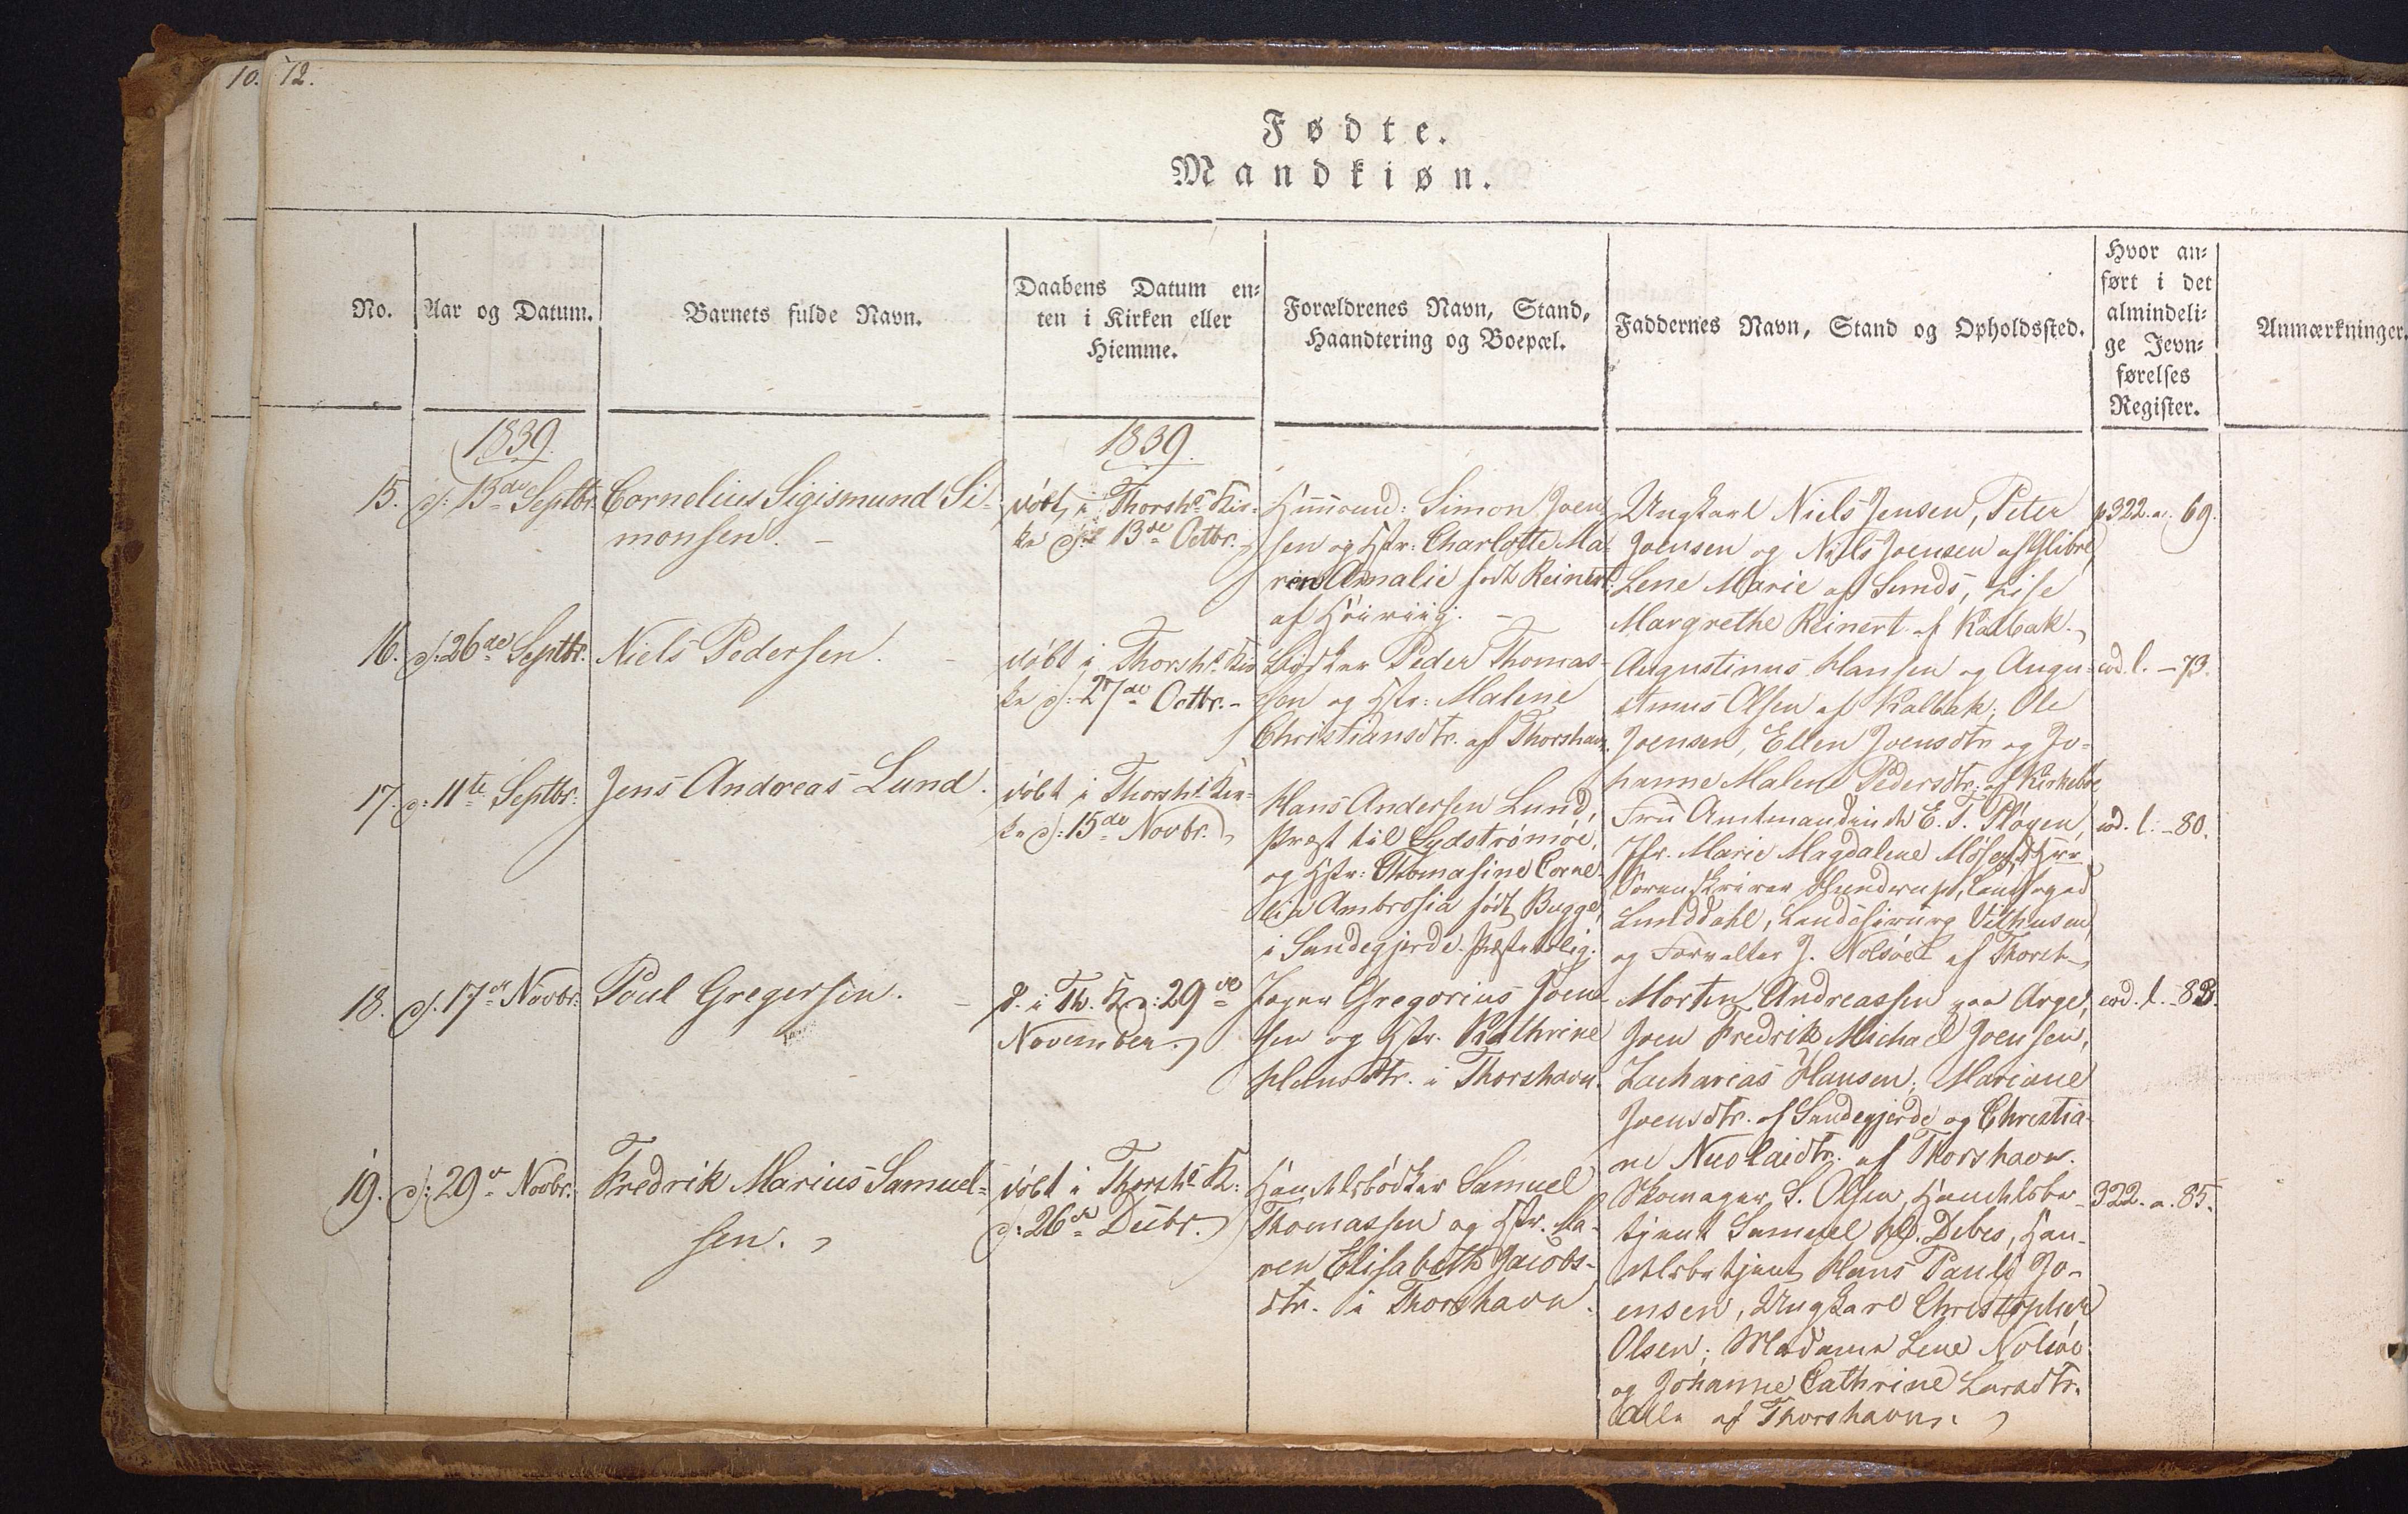 10.
12.
Fødte.
Mandkiøn.
No.
Aar og Datum.
Barnets fulde Navn.
Daabens Datum en-
ten i Kirken eller
Hiemme.
Forældrenes Navn, Stand,
Haandtering og Boepæl.
Faddernes Navn, Stand og Opholdssted.
Hvor an-
ført i det
almindeli-
ge Jevn-
førelses
Register.
Anmærkninger.
1839.
1839.
15.
d: 13de Septbr.
Cornelius Sigismund Si-
monsen.
döbt i Thorshs Kir-
ke d: 13de Octbr.
Huusmd: Simon Joen-
sen og Hstr: Charlotte Ma-
ren Amalie födt Reinert
af Höiviig.
Ungkarl Niels Jensen, Peter
Joensen og Niels Joensen af Glibre,
Lene Marie af Sunds, Lise
Margrethe Reinert af Kalbak.
p322.a. 69.
16.
d: 26de Septbr.
Niels Pedersen.
döbt i Thorshs Kir-
ke d: 27de Octbr.
Peder Thomas-
sen og Hstr: Malene
Christiansdtr. af Thorshavn.
Augustinus Hansen og Augu-
stinus Olsen af Kalbak; Ole
Joensen, Ellen Joensdtr og Jo-
hanne Malene Pedersdtr. af Kirkeböe
eod. l. - 73.
17.
d: 11te Septbr.
Jens Andreas Lund.
döbt i Thorshs Kir-
ke d: 15de Novbr.
Hans Andersen Lund,
Præst til Sydströmöe,
og Hstr: Thomasine Corne-
lia Ambrosia födt Bugge,
i Sandegjerde Præstebolig.
Fru Amtmandinde E. T. Plöyen,
Jfr. Marie Magdalene Hr
Sorenskriver Hunderup, Landfoged
Lunddahl, Landchirurg
og Forvalter J. Nolsöe af Thorsh.
eod. l. - 80.
18.
d. 17de Novbr.
Poul Gregersen.
d. i Th. K. d: 29de
November.
Jæger Gregorius Joen-
sen og Hstr. Kathrine
Hansdtr. i Thorshavn.
Morten Andreassen paa Arge,
Joen Fredrik Michael Joensen,
Zacharias Hansen; Mariane
Joensdtr. af Sandegjerde og Christia-
ne Nicolaidtr. af Thorshavn.
eod. l. - 83.
19.
d: 29de Novbr.
Fredrik Marius Samuel-
sen.
döbt i Thorshs K.
d: 26de Decbr.
Handelsbödker Samuel
Thomassen og Hstr. Ma-
ren Elisabeth Jacobs-
dtr. i Thorshavn.
Skomager S. Olsen, Handelsbe-
tjent Samuel M. Debes, Han-
delsbetjent Hans Pauli Jo-
ensen, Ungkarl Christopher
Olsen; Madame Lene Nolsöe
og Johanne Cathrine Larsdtr.
Alle af Thorshavn.
322. a. 85.